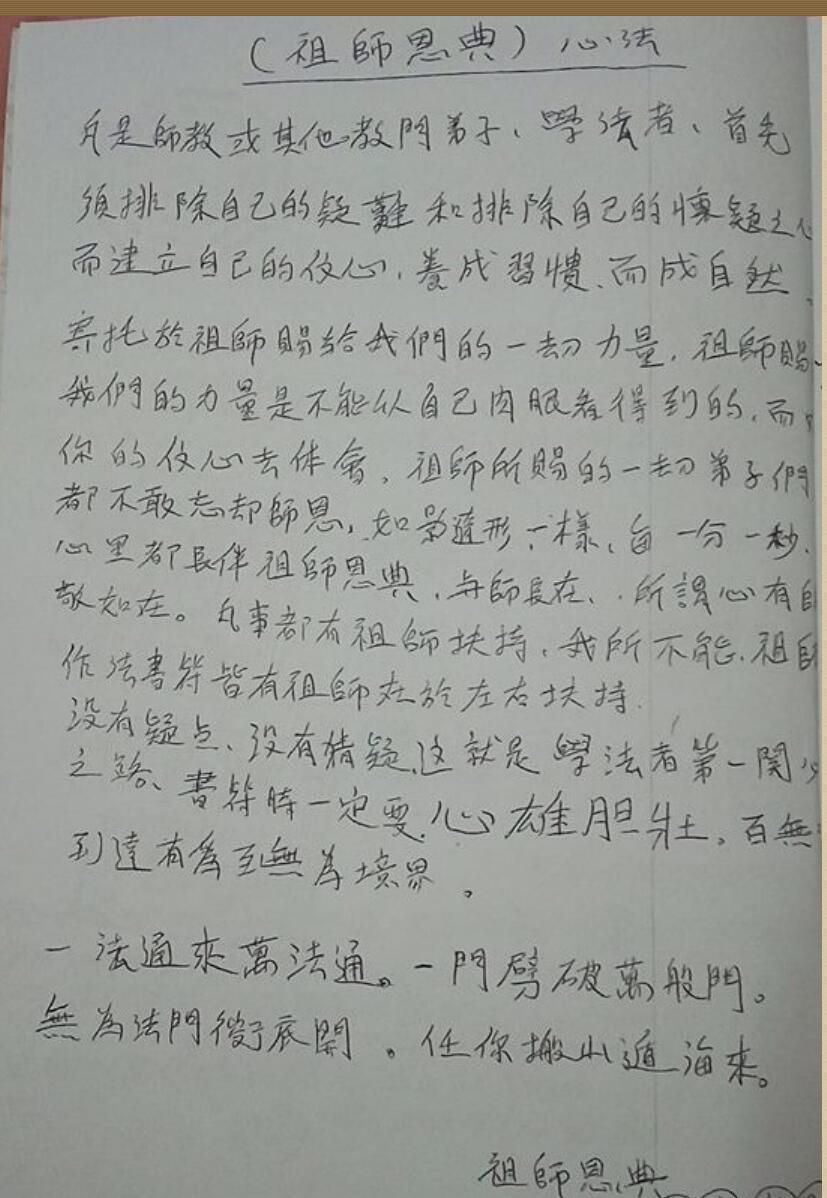 (祖師恩典)心法
凡是師教或其他教門弟子、學法者、首先
須排除自己的疑難和排除自己的懷疑之心
而建立自己的信心，養成習慣、而成自然、
寄托於祖師賜給我們的一切力量，祖師賜
我們的力量是不能从自己肉眼看得到的，而
你的信心去体會，祖師所賜的一切弟子們
都不敢忘却師恩，如影隨形一樣，每一分一秒、
心里都長伴祖師恩典，与師長在、所謂心有
敬如在。凡事都有祖師扶持，我所不能、祖師
作法書符皆有祖師在於左右扶持.
没有疑点、没有猜疑、这就是學法者第一関
之路、書符時一定要心雄胆壮。百無
到達有為至無為境界。
一法通來萬法通。一門劈破萬般門。
無為法門徹底開。任你搬山遁海來。
祖師恩典